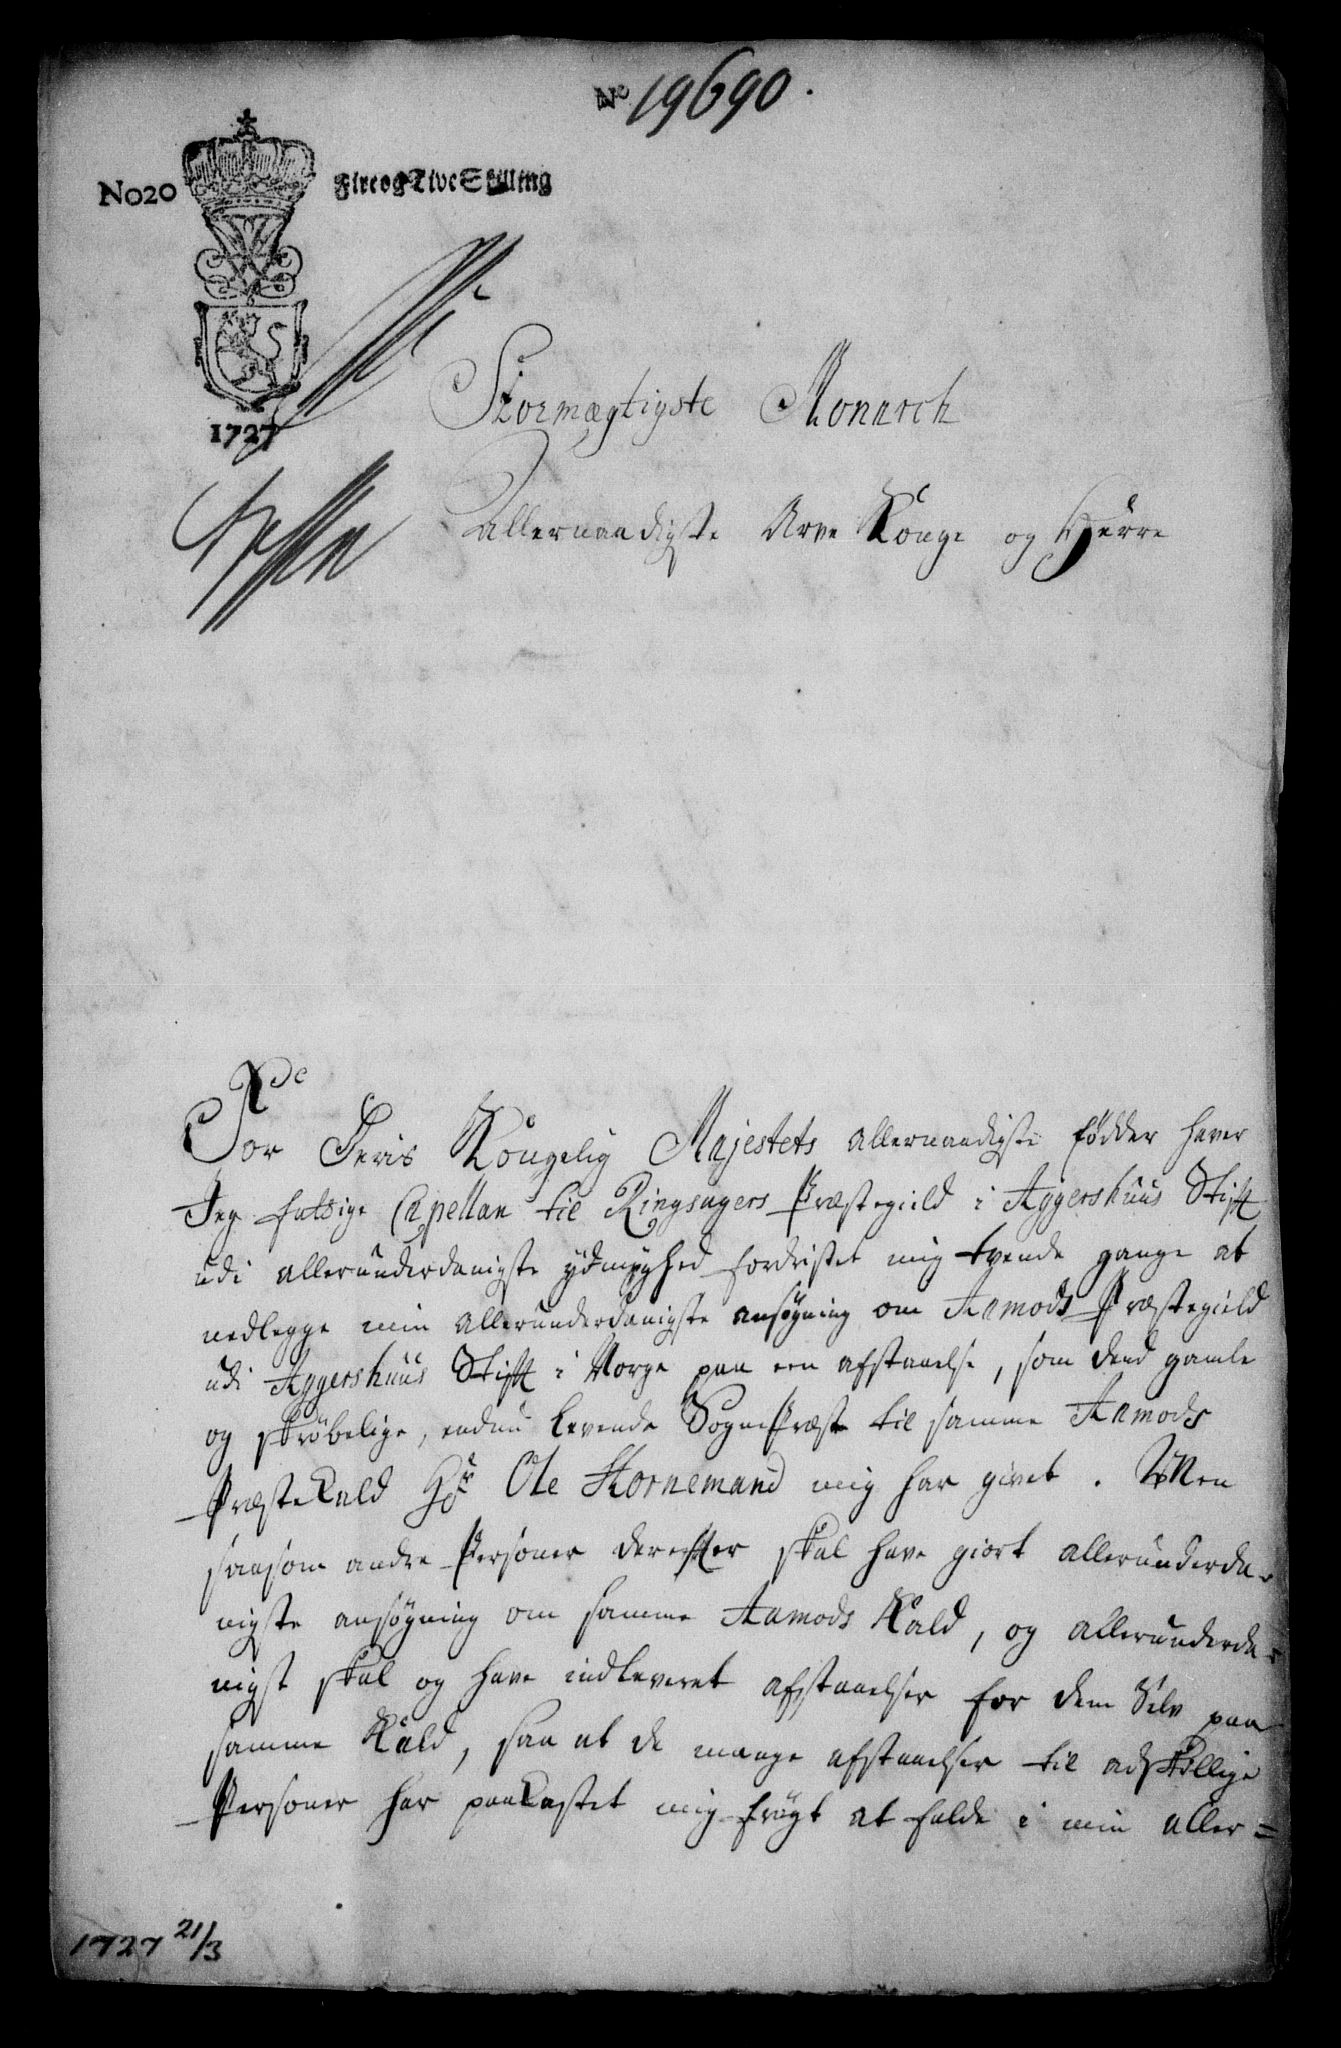 No 19690.
No20 Fire og Tive Skilling
1727
Stormægtigste Monarch
Allernaadigste Arve Konge og Herre
For Deris Kongelig Majestets allernaadigste fødder haver
Jeg fattige Capellan til Ringsagers Præstegield i Aggershuus Stift
udi allerunderdanigste ydmyghed fordristet mig tvende gange at
nedlegge min allerunderdanigste ansøgning om Aamods Præstegield
udi Aggershuus Stift i Norge paa een afstaaelse, som dend gamle
og skrøbelige, endnu levende SognePræst til samme Aamods
PræsteKald Hr Ole Hornemand mig har givet. Men
saasom andre Personer derefter skal have giort allerunderda-
nigste ansøgning om samme Aamods Kald, og allerunderda-
nigst skal og have indleveret afstaaelser for dem Selv paa
samme Kald, saa at de mange afstaaelser til adskillige
Personer har paaKastet mig frøgt at falde i min aller=
1727 21/3